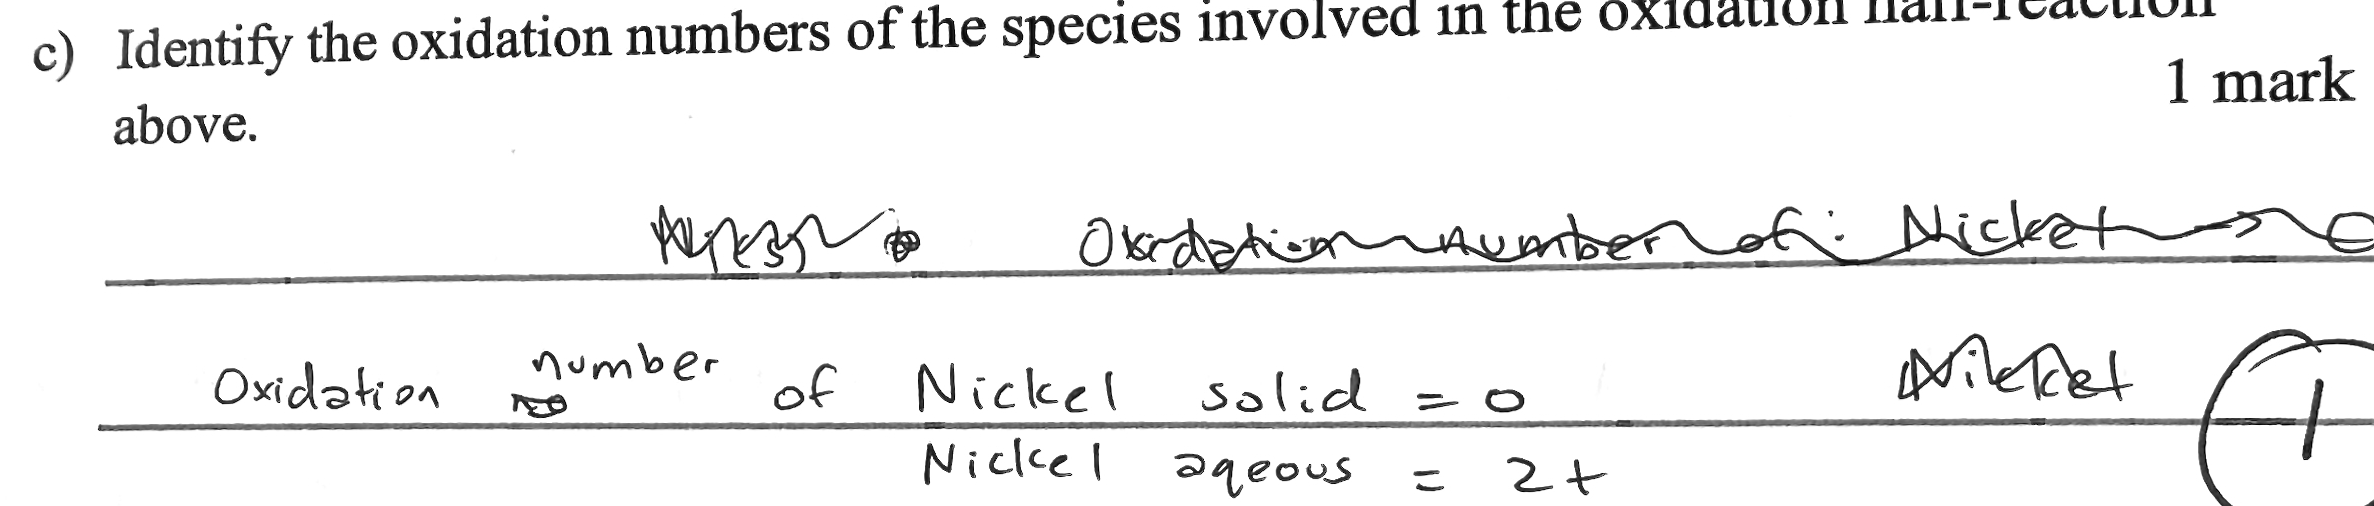 c) Identify the oxidation numbers of the species involved in the oxidation half-reaction
1 mark
above.
Oxidation number of: Nickel → 0
Oxidation number of Nickel solid = 0 Nickel
1
Nickel aqeous = 2+